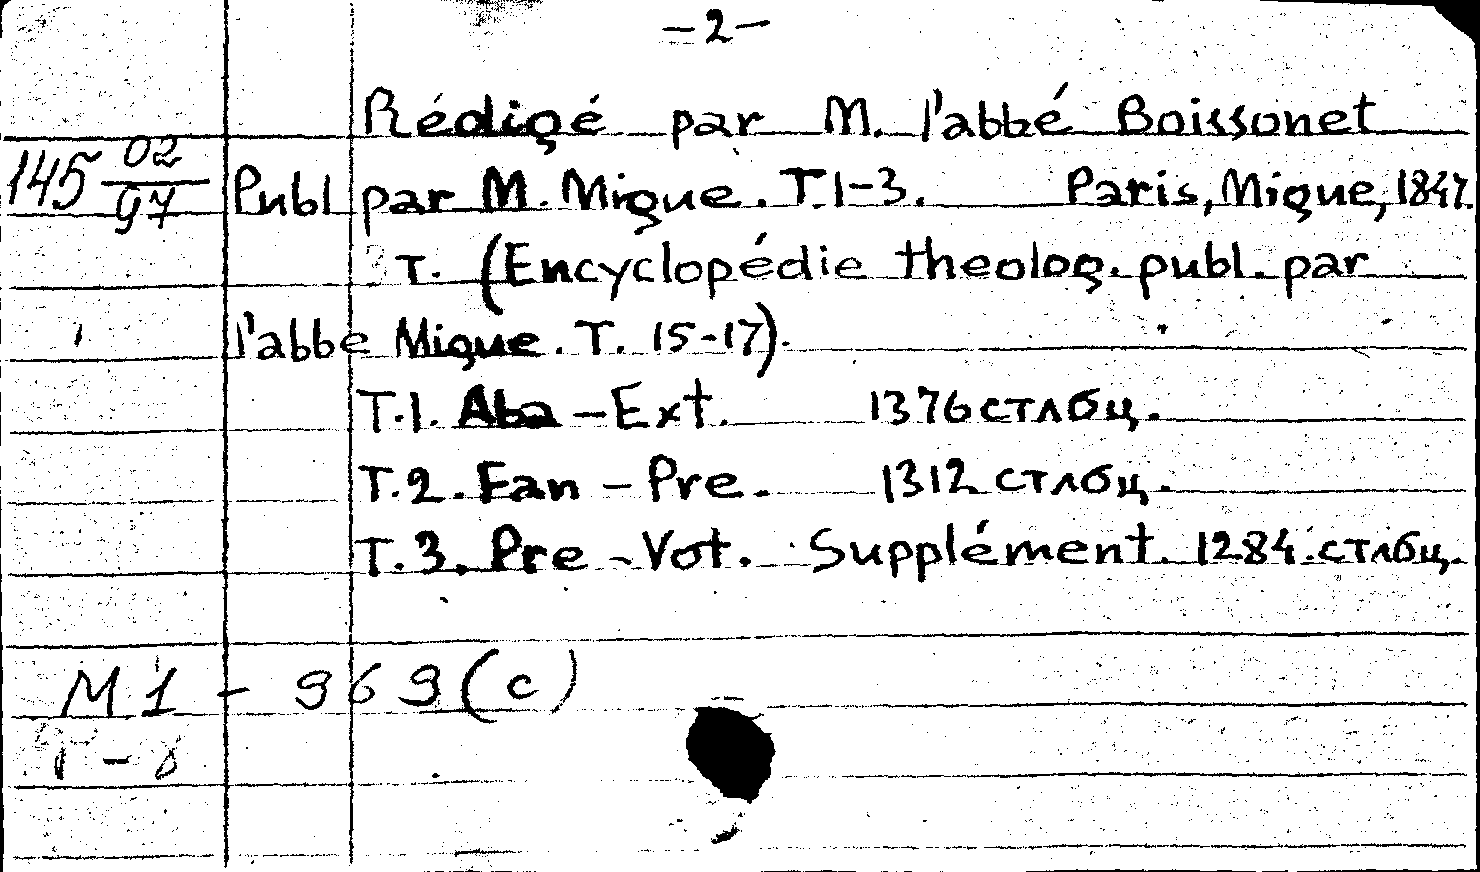 -2-
Rédigé par M. l'abbé Boissonet
145 02/97 Publ par M. Migue. T.1-3. Paris, Migue, 1847.
3 т. (Encyclopédie theolog. publ. par
l'abbe Migue. T. 15-17).
T.1. Aba - Ext. 1376 стлбц.
T.2. Fan - Pre. 1312 стлбц.
T.3. Pre - Vot. Supplément. 1284 стлбц.
М1 - 969 (с)